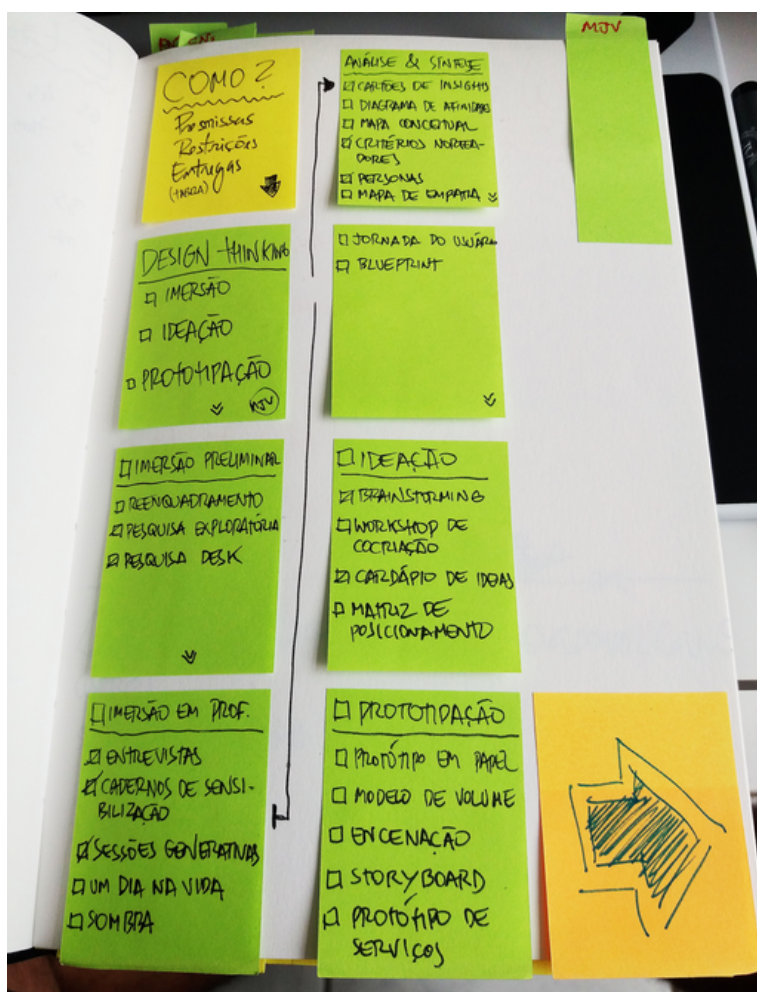 COMO?
Premissas
Restrições
Entregas
(TABELA)
DESIGN THINKING
IMERSÃO
IDEAÇÃO
PROTOTIPAÇÃO
MJV
IMERSÃO PRELIMINAR
REENQUADRAMENTO
PESQUISA EXPLORATÓRIA
PESQUISA DESK
IMERSÃO EM PROF.
ENTREVISTAS
CADERNOS DE SENSI-
BILIZAÇÃO
SESSÕES GENERATIVAS
UM DIA NA VIDA
SOMBRA
ANÁLISE & SÍNTESE
CARTÕES DE INSIGHTS
DIAGRAMA DE AFINIDADES
MAPA CONCEITUAL
CRITÉRIOS NORTEA-
DORES
PERSONAS
MAPA DE EMPATIA
JORNADA DO USUÁRIO
BLUEPRINT
IDEAÇÃO
BRAINSTORMING
WORKSHOP DE
COCRIAÇÃO
CARDÁPIO DE IDEIAS
MATRIZ DE
POSICIONAMENTO
PROTOTIPAÇÃO
PROTÓTIPO EM PAPEL
MODELO DE VOLUME
ENCENAÇÃO
STORYBOARD
PROTÓTIPO DE
SERVIÇOS
MJV